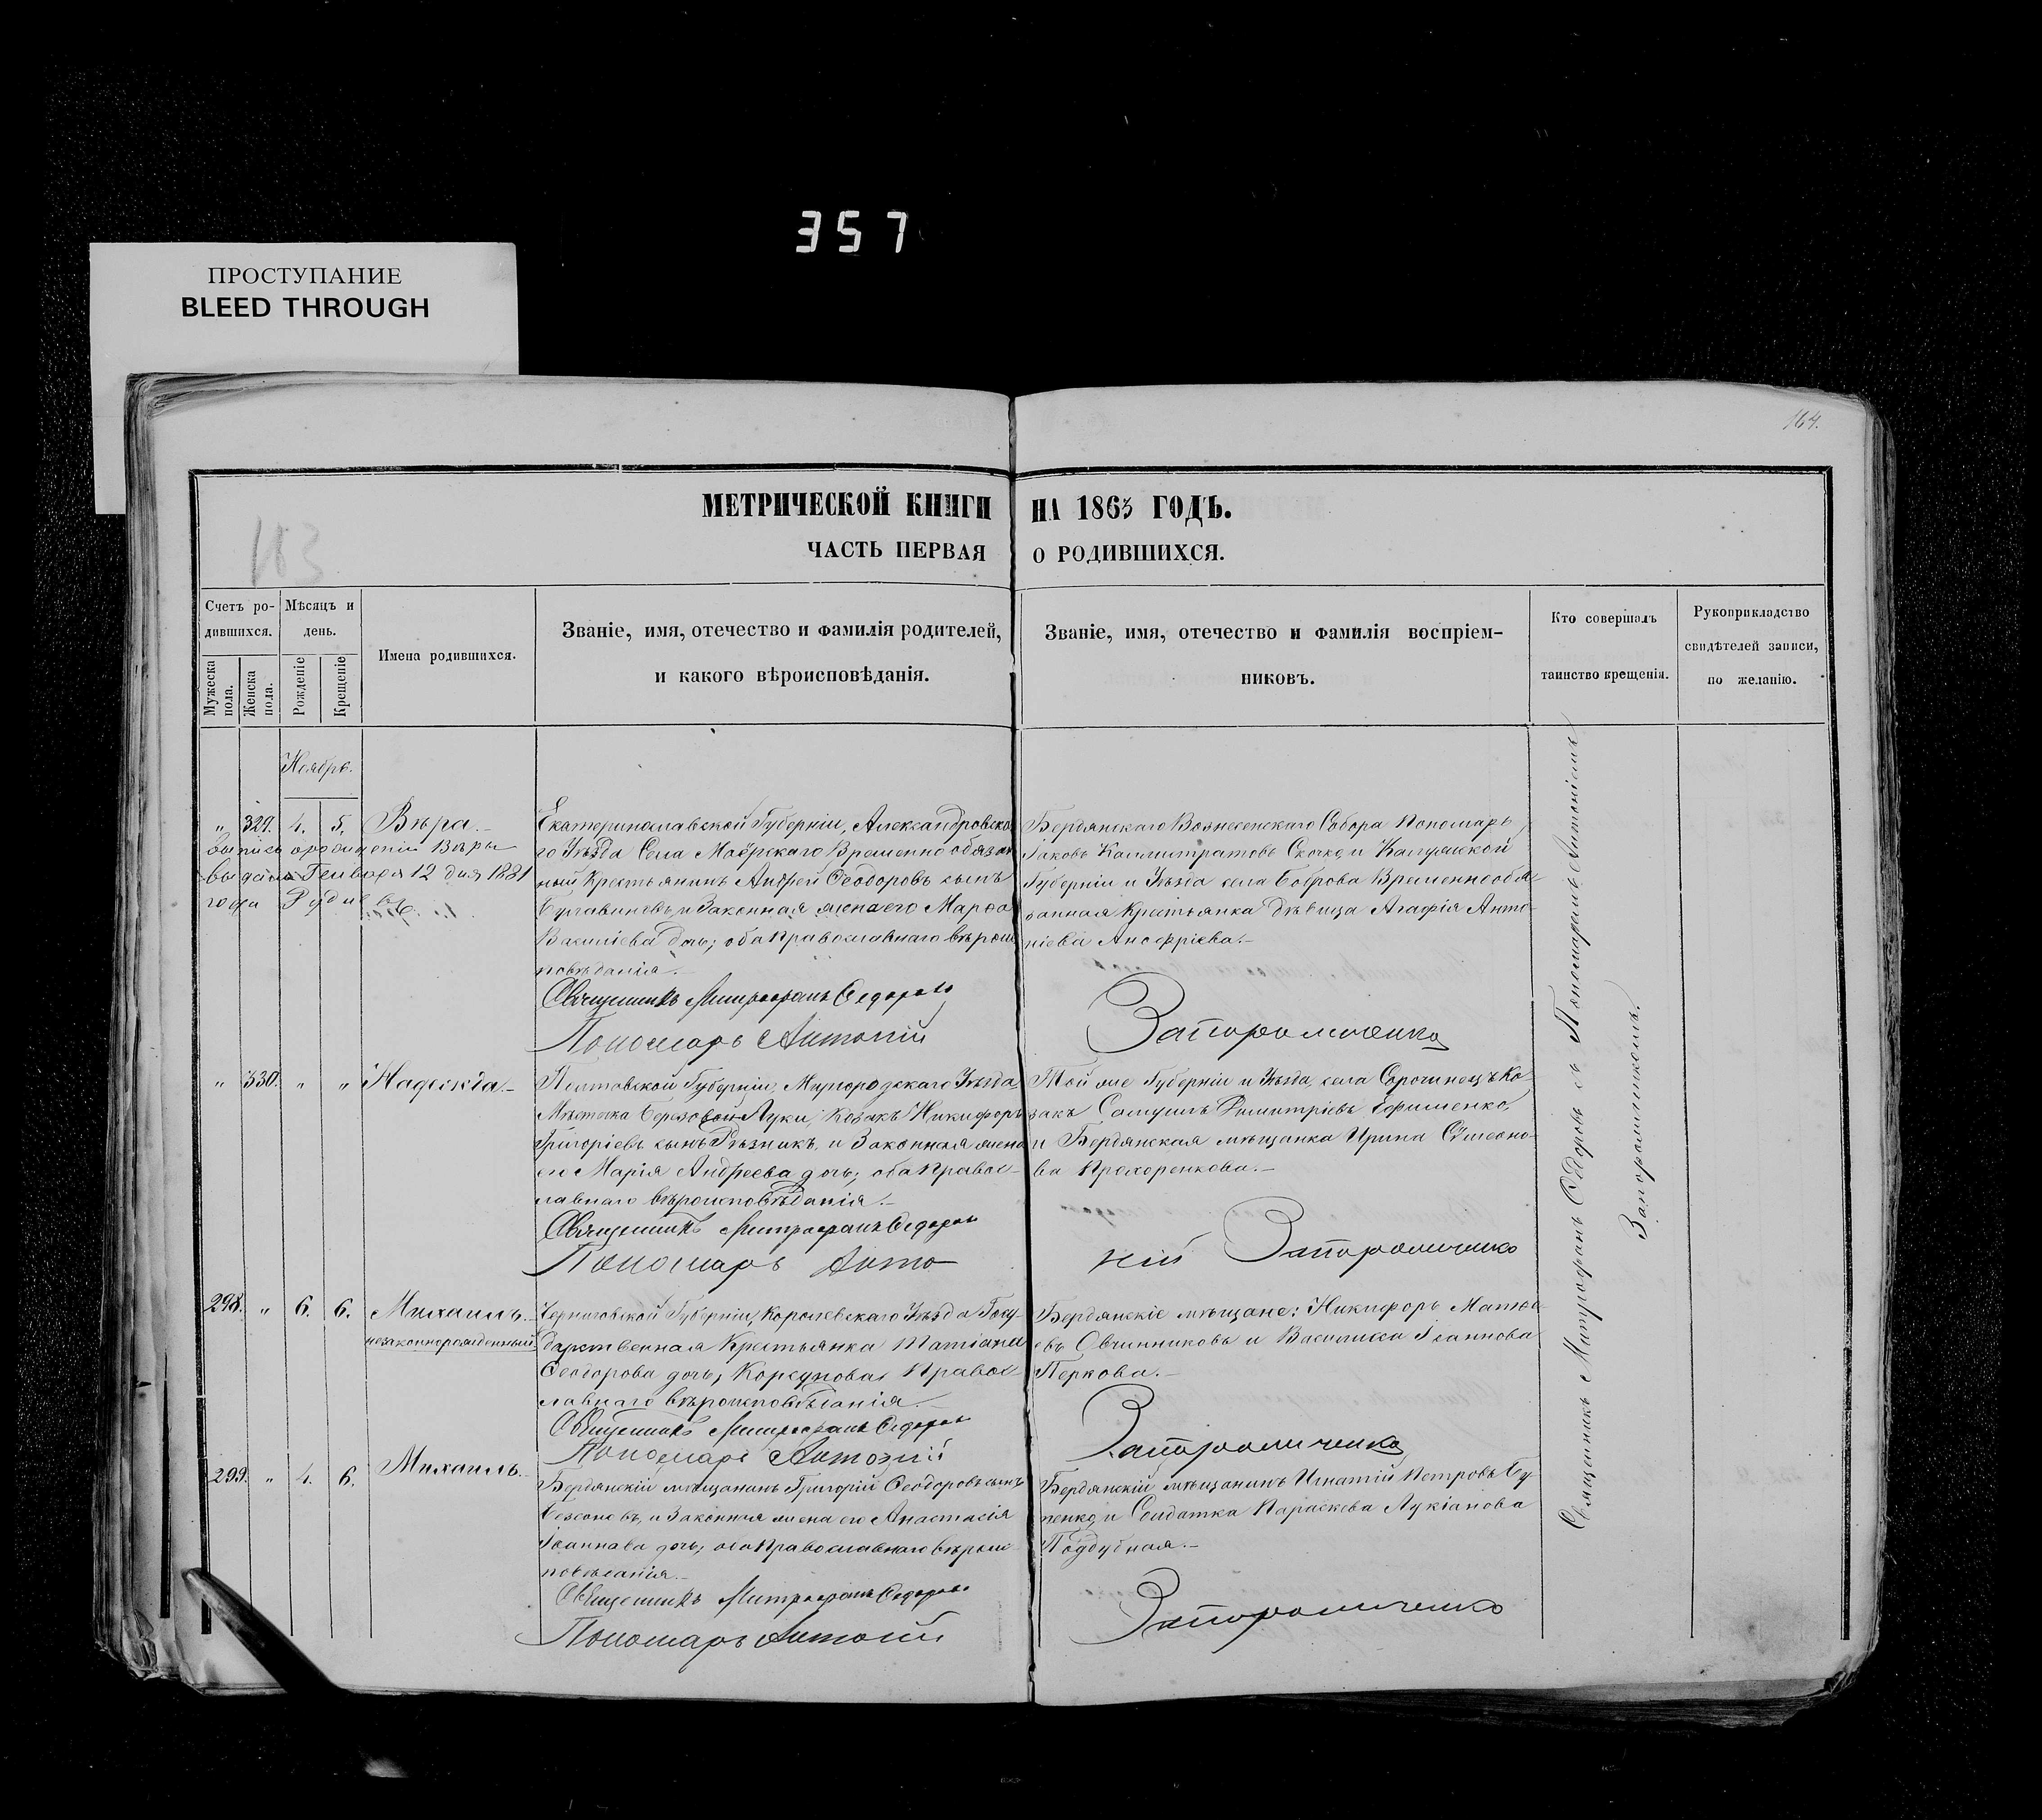 357
ПРОСТУПАНИЕ
BLEED THROUGH
164.
МЕТРИЧЕСКОЙ КНИГИ НА 1863 ГОДЪ.
103
ЧАСТЬ ПЕРВАЯ О РОДИВШИХСЯ.
Счетъ ро-
дившихся.
Мужеска пола.
Женска пола.
Мѣсяцъ и
день.
Рожденіе
Крещеніе
Имена родившихся.
Званіе, имя, отечество и фамилія родителей,
и какого вѣроисповѣданія.
Званіе, имя, отечество и фамилія воспріем-
никовъ.
Кто совершалъ
таинство крещенія.
Рукоприкладство
свидѣтелей записи,
по желанію.
Ноябрь.
„ 329. 4. 5. Вѣра.
выпись о рожденіи Вѣры
выдана Генваря 12 дня 1881
года
Екатеринославской Губерніи, Александровска-
го Уѣзда Села Маёрскаго Временно обязан-
ный Крестьянинъ Андрей Ѳеодоровъ сынъ
и Законная жена его Марѳа
Василіева дочь; оба православнаго вѣроис-
повѣданія.
Священникъ Митрофанъ Федоровъ
Пономарь Антоній Запорожченко
Бердянскаго Вознесенскаго Собора Пономарь
Іаковъ Каллистратовъ Скочко, и Калужской
Губерніи и Уѣзда села Боброва Временнообя-
занная Крестьянка дѣвица Агафія Анто-
ніева Анофріева.
„ 330. „ „ Надежда.
Полтавской Губерніи, Миргородскаго Уѣзда
Мѣстечка Березовой Луки, Козакъ Никифоръ
Григоріевъ сынъ Рѣзникъ, и Законная жена
его Марія Андреева дочь; оба Правос-
лавнаго вѣроисповѣданія.
Священникъ Митрофанъ Федоровъ
Пономарь Антоній Запорожченко
Той же Губерніи и Уѣзда, села Сорочинецъ Ко-
закъ Самуилъ Димитріевъ Ефименко,
и Бердянская мѣщанка Ирина Сѵмеоно-
ва Прохоренкова.
298. „ 6. 6. Михаилъ
незаконнорожденный
Черниговской Губерніи, Королевскаго Уѣзда Госу-
дарственная Крестьянка Татіана
Ѳеодорова дочь, Корсунова, Правос-
лавнаго вѣроисповѣданія.
Священникъ Митрофанъ Федоровъ
Пономарь Антоній Запорожченко
Бердянскіе мѣщане: Никифоръ Матѳе-
евъ Овчинниковъ и Василиса Іоаннова
Перкова.
299. „ 4. 6. Михаилъ.
Бердянскій мѣщанинъ Григорій Ѳеодоровъ сынъ
Безсоновъ, и Законная жена его Анастасія
Іоаннова дочь; оба Православнаго вѣроис-
повѣданія.
Священникъ Митрофанъ Федоровъ
Пономарь Антоній Запорожченко
Бердянскій мѣщанинъ Игнатій Петровъ Бу-
ценко, и Солдатка Параскева Лукіанова
Поддубная.
Священникъ Митрофанъ Ѳедоровъ съ Пономаремъ Антоніемъ
Запорожченкомъ.